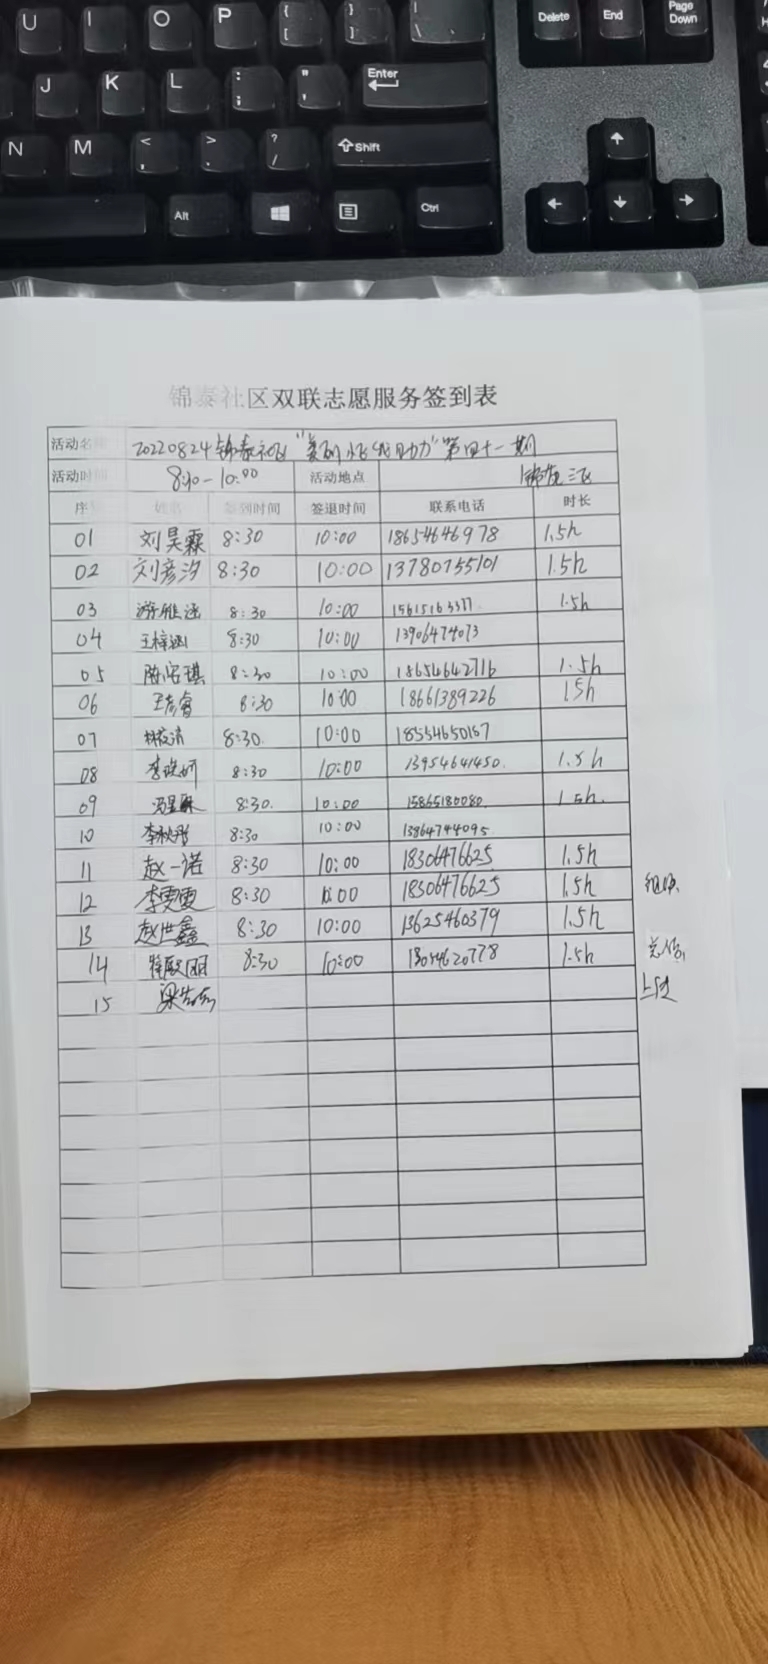 U I O P { [ } ] | \ Delete End Page Down
J K L : ; " ' Enter
N M < , > . ? / Shift
Alt Ctrl
锦泰社区双联志愿服务签到表
活动名 20220824锦泰社区 " 助力"第四十一期
活动时间 8:30-10:00 活动地点 锦苑三区
序号 姓名 签到时间 签退时间 联系电话 时长
01 刘昊霖 8:30 10:00 18654646978 1.5h
02 刘彦汐 8:30 10:00 13780755101 1.5h
03 游雅涵 8:30 10:00 1.5h
04 王梓涵 8:30 10:00 13906474073
05 陈安琪 8:30 10:00 18654642716 1.5h
06 王彦睿 8:30 10:00 18661389226 1.5h
07 8:30 10:00 18554650167
08 8:30 10:00 13954641450. 1.5h
09 8:30. 10:00 15865180080 1.5h.
10 李秋彤 8:30 10:00 13864744095
11 赵一诺 8:30 10:00 18306476625 1.5h
12 李雯雯 8:30 10:00 18306476625 1.5h
13 赵世鑫 8:30 10:00 13625460379 1.5h
14 8:30 10:00 1.5h
15